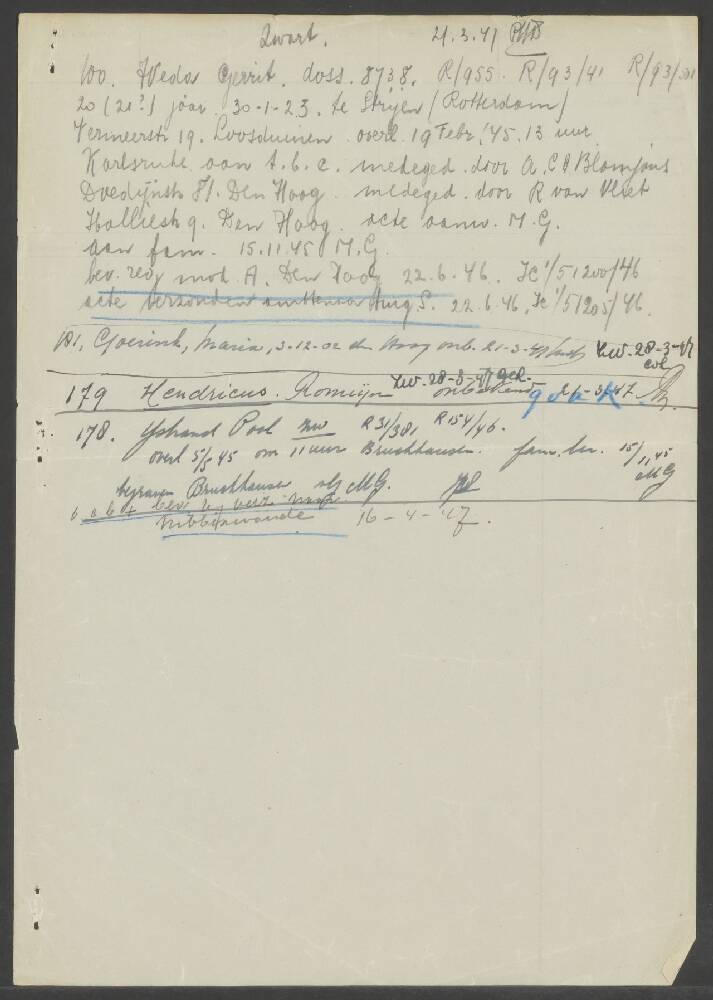 Zwart. 21.3.47
100. Weda Gerrit. doss. 8738. R/955. R/93/41 R/93/
20 (21?) jaar 30-1-23. te Strijen (Rotterdam)
Vermeerstr 19. Loosduinen overl. 19 Febr. '45. 13 uur
Karlsruhe aan t.b.c. medeged. door A. C. Blomjous
Doedijnstr 81. Den Haag. medeged. door R van Vliet
9. Den Haag. acte aanw. M.G.
aan fam. 15.11.45 M.G.
bev. reg mod. A. Den Haag 22.6.46. Jc 1/51200/46
acte verzonden ambtenaar Burg S. 22.6.46, Jc 1/51205/46.
181, Goerink, Maria, 3-12-02 den Haag onb. 21-3-47 Zw. 28-3-47
179 Hendricus. Romeijn Zw. 28-3-47 gek. onbekend 21-3-47.
178. IJsbrand Pool R31/381 R154/46.
overl 5/5 45 om 11 uur Bruchhausen. fam. ber. 15/11 45 MG
begraven Bruchhausen MG.
16-4-47.